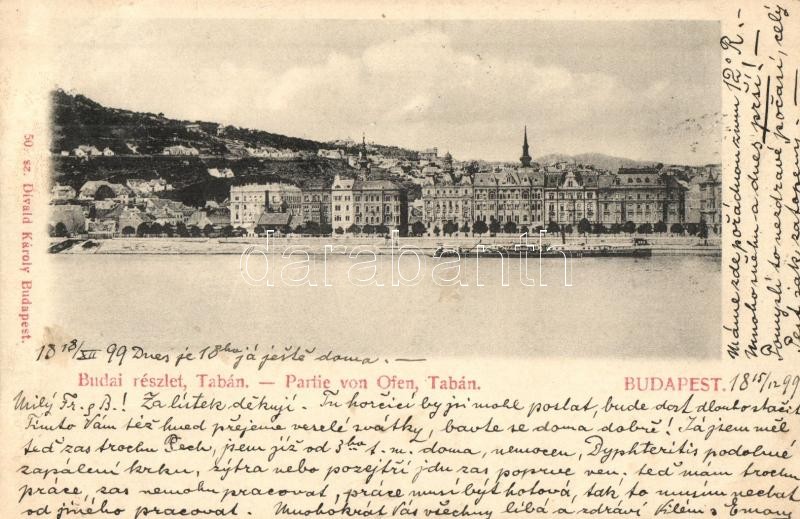 Máme zde pořád rovnum 12° R.—
Mnoho sněhu a dnes prší! —
Pomyslí to nezdravé počasí, celý
Pest jak
50. sz. Divald Károly Budapest.
darabanth
18 18/XII 99 Dnes je 18ho já ještě doma. —
Budai részlet, Tabán. — Partie von Ofen, Tabán.
BUDAPEST. 18 15/12 99
Milý Fr. g B.! Za lístek děkuji. Tu hořčici by jsi mohl poslat, bude dost dlouho stačit
Tímto Vám též hned přejeme veselé svátky, bavte se doma dobře! Já jsem měl
teď zas trochu Pech, jsem již od 3ho t. m. doma, nemocen, Dyphteritis podobné
zapálení krku, zýtra nebo pozejtří jdu zas poprvé ven. teď mám trochu
práce, zas nemohu pracovat, práce musí být hotová, tak to musím nechat
od jiného pracovat. Mnohokrát Vás všechny líbá a zdraví Vilém & Emany